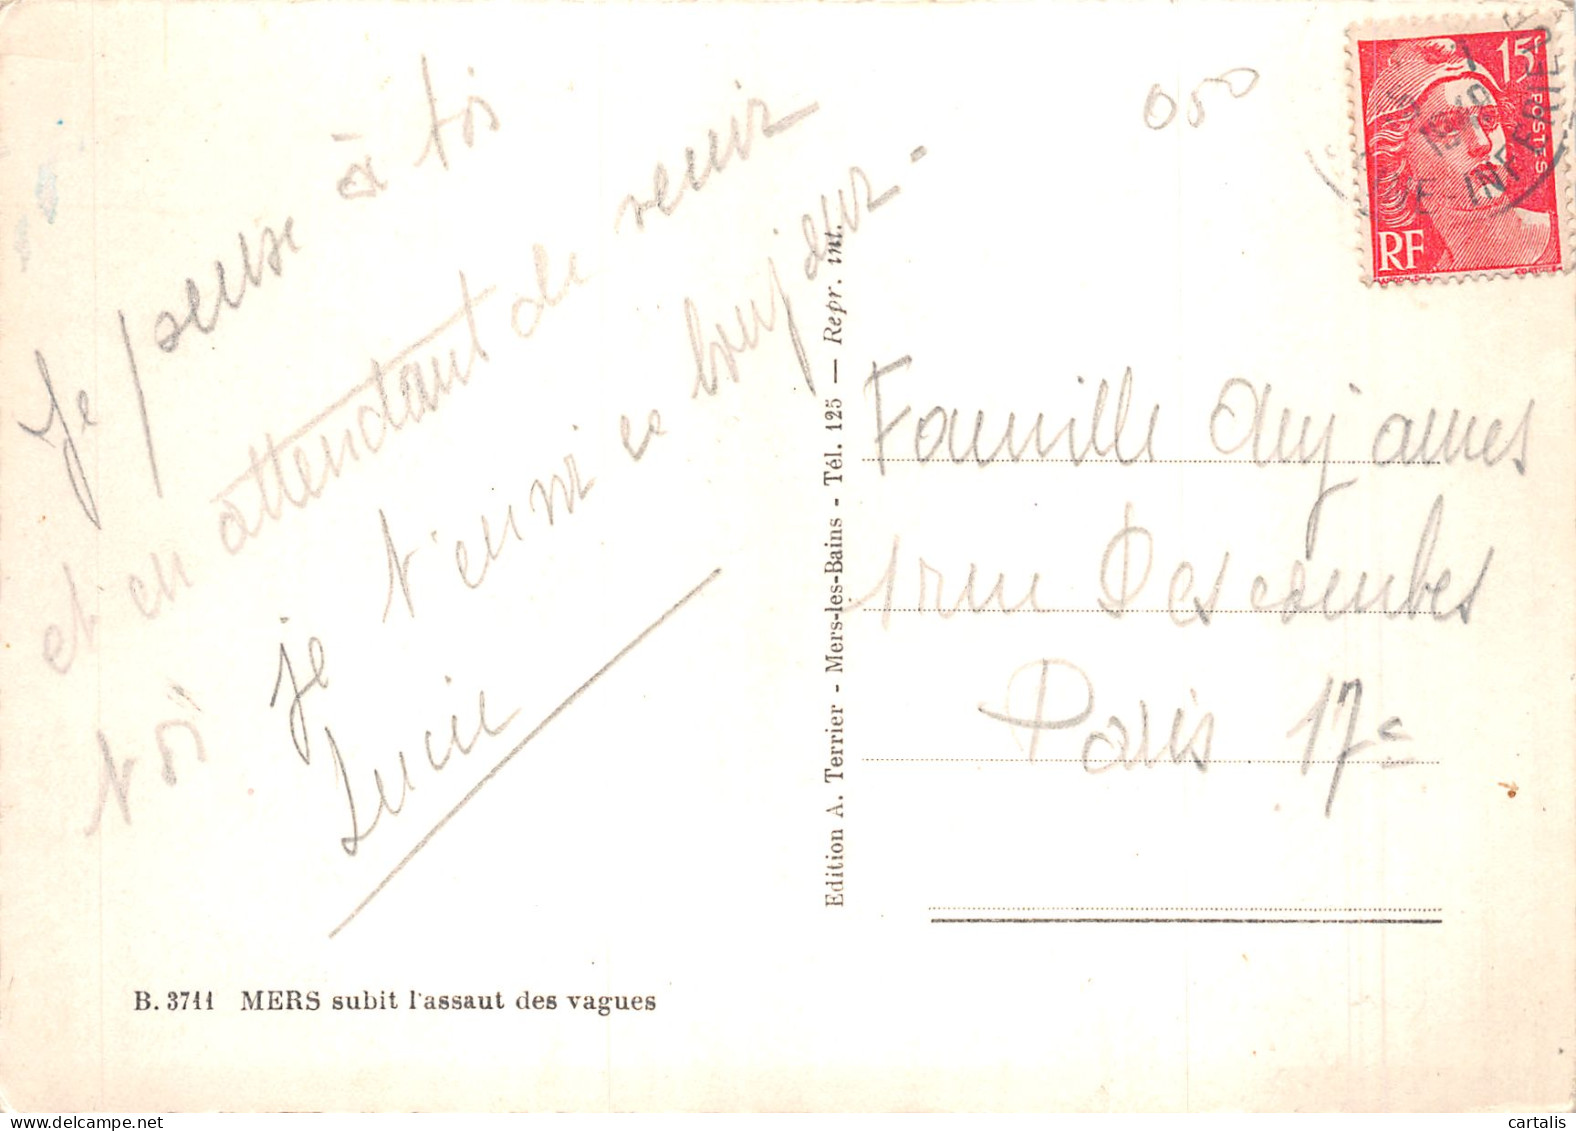 Je pense à toi
et en attendant de revenir
toi je t'envoi ce bonjour.
Lucie
B. 3711 MERS subit l'assaut des vagues
Edition A. Terrier - Mers-les-Bains - Tél. 125 — Repr. int.
050
15F
POSTES
RF
INFERIEURE
Famille
1 rue Descombes
Paris 17e
cartalis